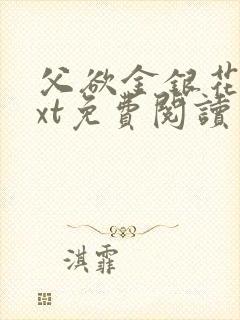 父欲金銀花
xt免費閱讀
淇霏